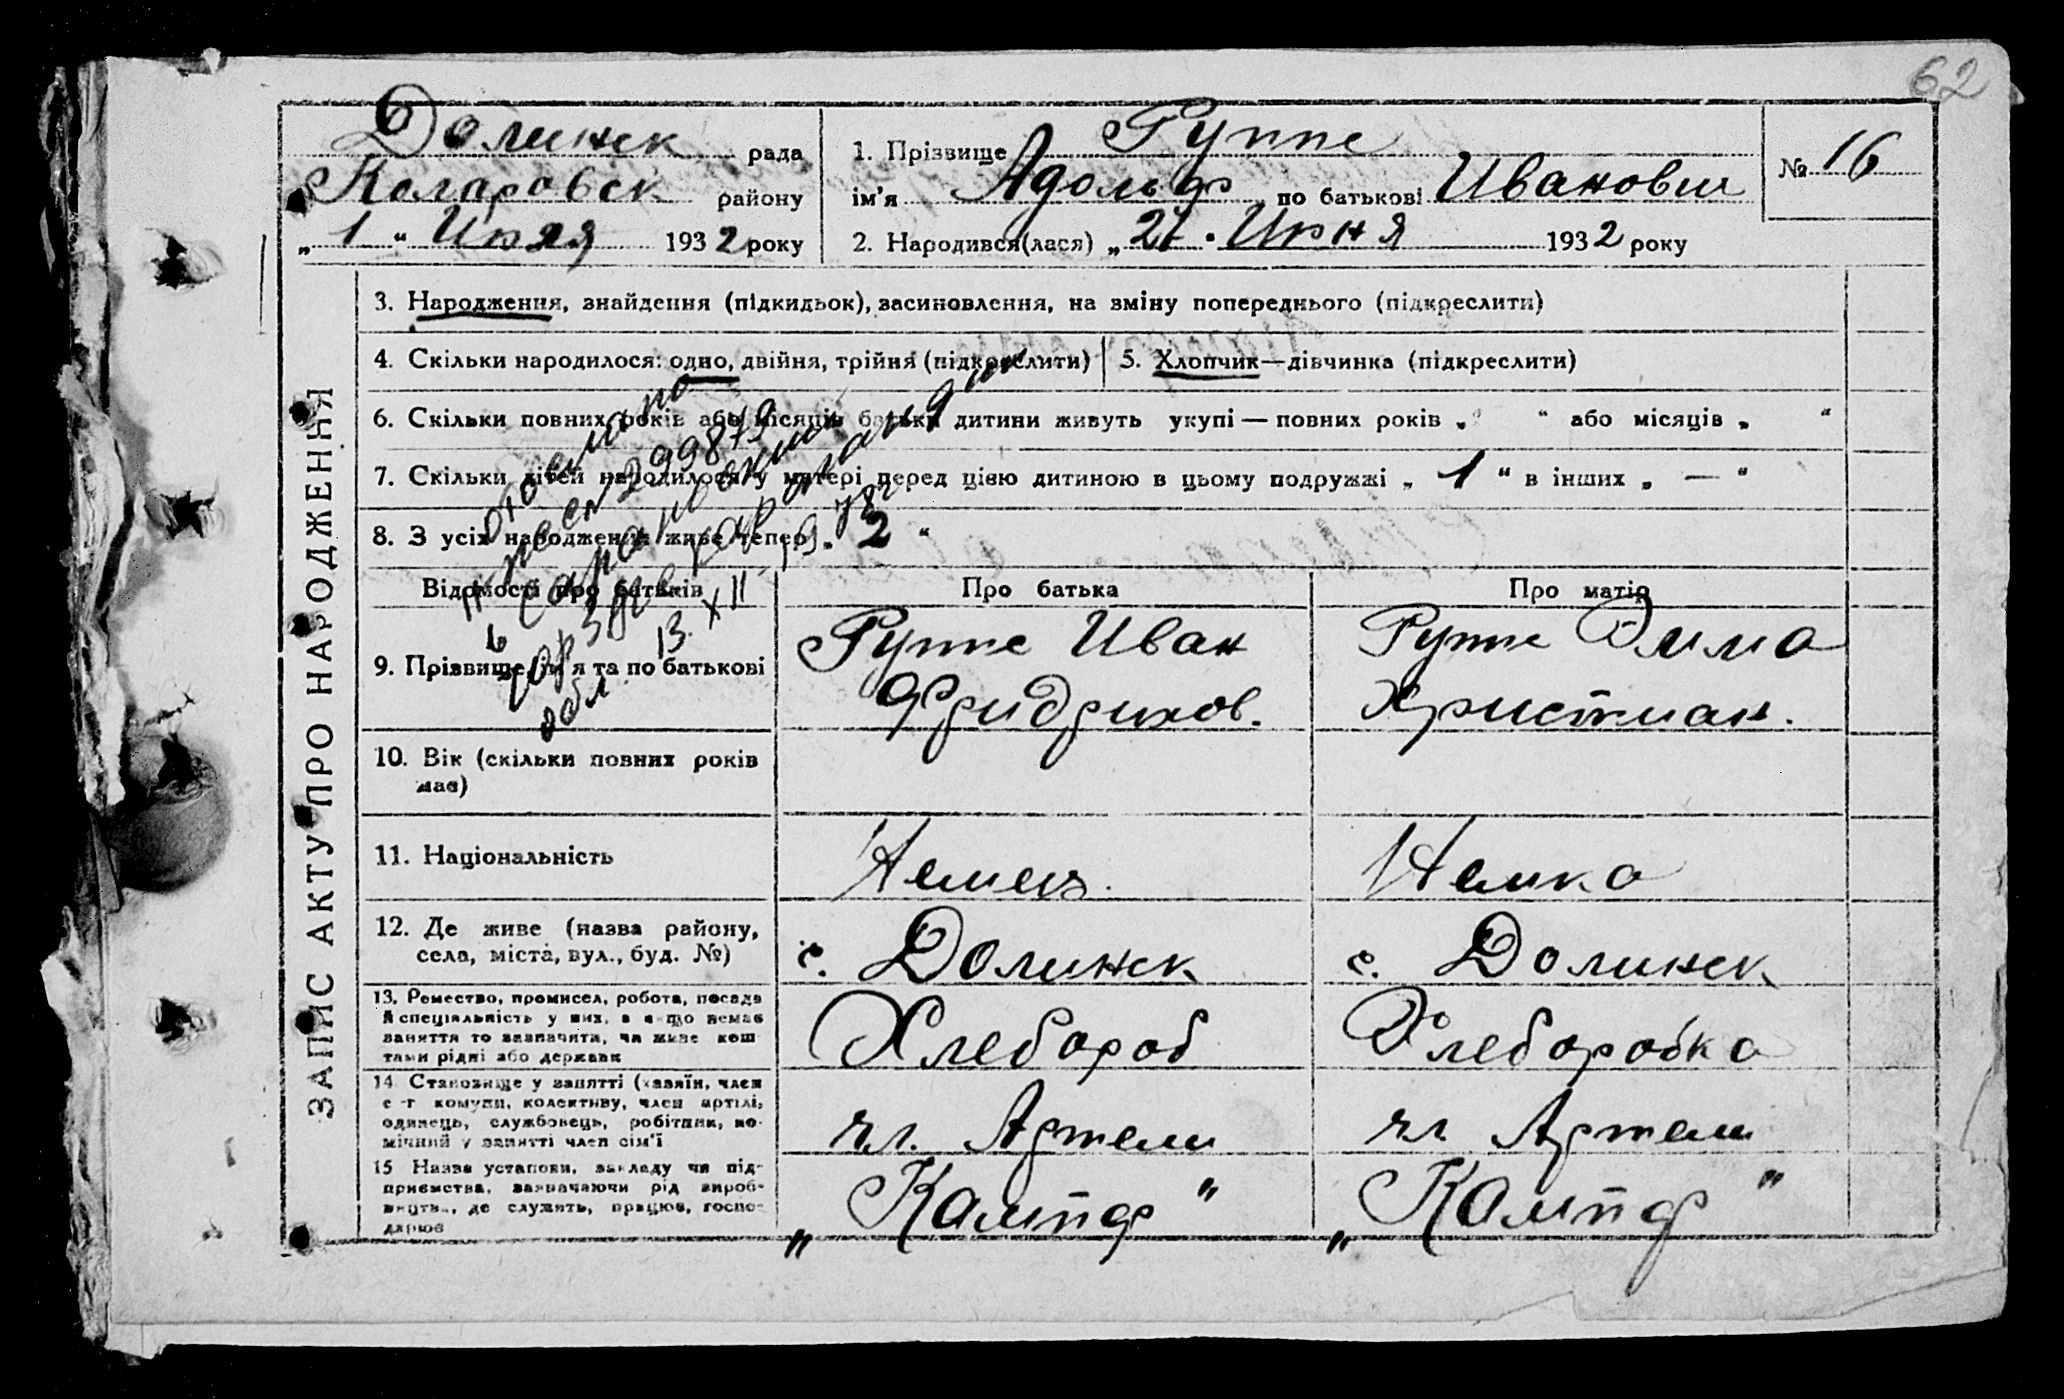 62
Долинск рада
Коларовск району
„ 1 " Июля 1932 року
1. Прізвище Руппе
ім'я Адольф по батькові Иванович
2. Народився(лася) „ 21 " Июня 1932 року
№ 16
ЗАПИС АКТУ ПРО НАРОДЖЕННЯ
3. Народження, знайдення (підкидьок), засиновлення, на зміну попереднього (підкреслити)
4. Скільки народилося: одно, двійня, трійня (підкреслити)
5. Хлопчик—дівчинка (підкреслити)
6. Скільки повних років або місяців батьки дитини живуть укупі — повних років „ " або місяців „ "
7. Скільки дітей народилося у матері перед цією дитиною в цьому подружжі „ 1 " в інших „ — "
8. З усіх народжених живе тепер „ 2 "
299879
13. XII 1978
обл
Відомості про батьків
Про батька
Про матір
9. Прізвище, ім'я та по батькові
Руппе Иван
Фридрихов.
Руппе Эмма
Христиан.
10. Вік (скільки повних років
має)
11. Національність
Немец.
Немка
12. Де живе (назва району,
села, міста, вул., буд. №)
с. Долинск
с. Долинск
13. Ремество, промисел, робота, посада
й спеціяльність у них, а якщо немає
заняття то зазначити, чи живе кош
тами рідні або держави
Хлебороб
Хлеборобка
14 Становище у занятті (хазяїн, член
с-г комуни, колективу, член артілі,
одинець, службовець, робітник, по-
мічний у занятті член сім'ї
чл. Артели
чл Артели
15 Назва установи, закладу чи під-
приємства, зазначаючи рід вироб-
ництва, де служить, працює, госпо-
дарює
„ Кампф "
„ Кампф "